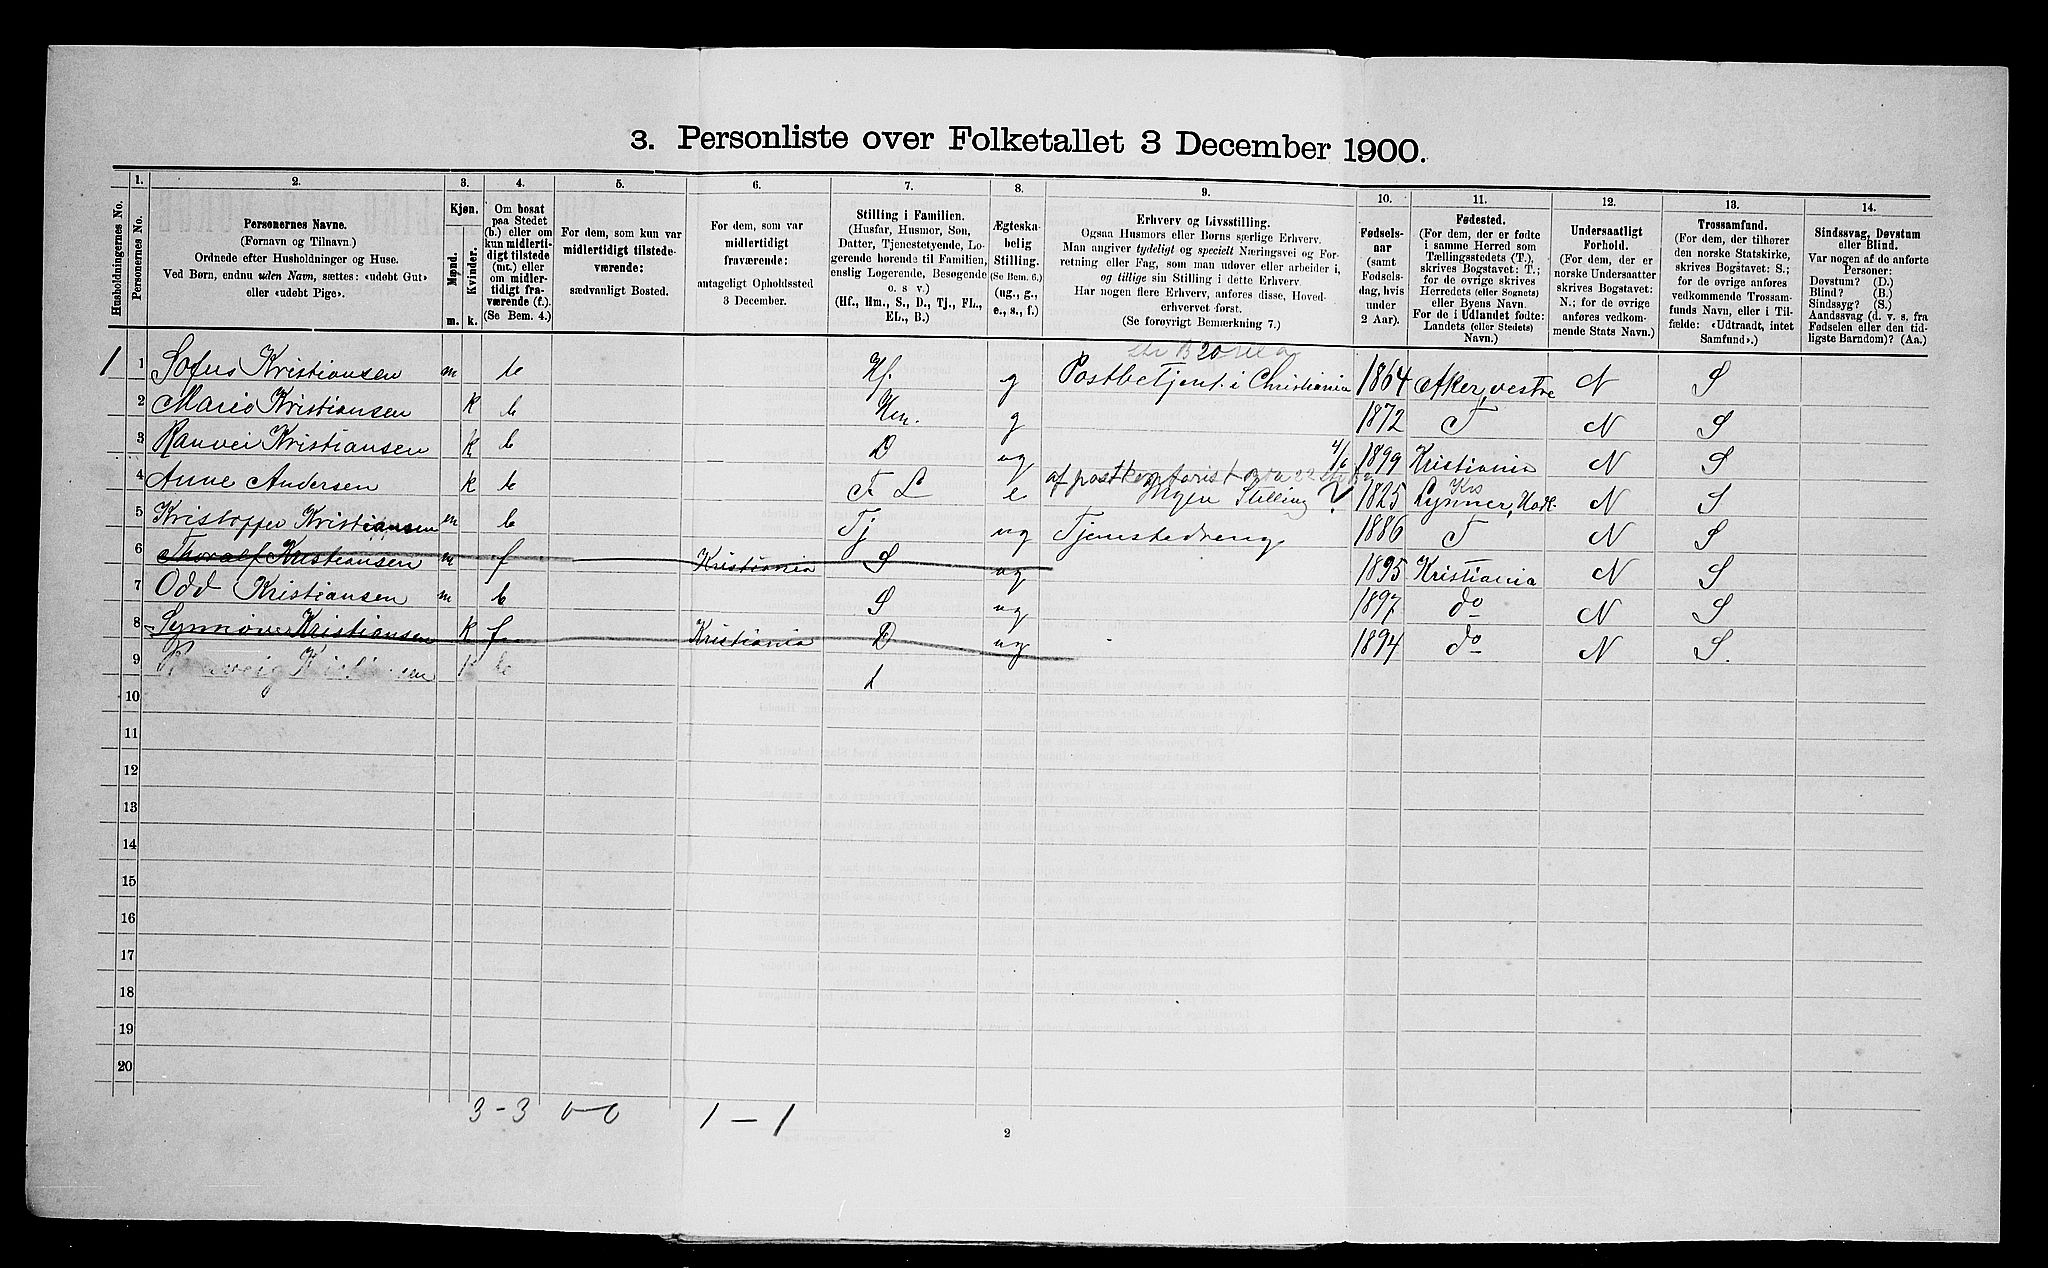 3. Personliste over Folketallet 3 December 1900.
Husholdningernes No.
1. Personernes No.
2. Personernes Navne. (Fornavn og Tilnavn.) Ordnede efter Husholdninger og Huse. Ved Børn, endnu uden Navn, sættes: «udøbt Gut» eller «udøbt Pige».
3. Kjøn. Mænd. m. Kvinder. k.
4. Om bosat paa Stedet (b.) eller om kun midlertidigt tilstede (mt.) eller om midlertidigt fraværende (f.). (Se Bem. 4.)
5. For dem, som kun var midlertidigt tilstedeværende: sædvanligt Bosted.
6. For dem, som var midlertidigt fraværende: antageligt Opholdssted 3 December.
7. Stilling i Familien. (Husfar, Husmor, Søn, Datter, Tjenestetyende, Logerende hørende til Familien, enslig Logerende, Besøgende o. s. v.) (Hf., Hm., S., D., Tj., FL., EL., B.)
8. Ægteskabelig Stilling. (Se Bem. 6.) (ug., g., e., s., f.)
9. Erhverv og Livsstilling. Ogsaa Husmors eller Børns særlige Erhverv. Man angiver tydeligt og specielt Næringsvei og Forretning eller Fag, som man udøver eller arbeider i, og tillige sin Stilling i dette Erhverv. Har nogen flere Erhverv, anføres disse, Hovederhvervet først. (Se forøvrigt Bemærkning 7.)
10. Fødselsaar (samt Fødselsdag, hvis under 2 Aar).
11. Fødested. (For dem, der er fødte i samme Herred som Tællingsstedets (T.), skrives Bogstavet: T.; for de øvrige skrives Herredets (eller Sognets) eller Byens Navn. For de i Udlandet fødte: Landets (eller Stedets) Navn.)
12. Undersaatligt Forhold. (For dem, der er norske Undersaatter skrives Bogstavet: N.; for de øvrige anføres vedkommende Stats Navn.)
13. Trossamfund. (For dem, der tilhører den norske Statskirke, skrives Bogstavet: S.; for de øvrige anføres vedkommende Trossamfunds Navn, eller i Tilfælde: «Udtraadt, intet Samfund».)
14. Sindssvag, Døvstum eller Blind. Var nogen af de anførte Personer: Døvstum? (D.) Blind? (B.) Sindssyg? (S.) Aandssvag (d. v. s. fra Fødselen eller den tidligste Barndom)? (Aa.)
1 1 Sofus Kristiansen m b Hf. g Postbetjent i Christiania 1864 Aker, vestre N S
2 Marie Kristiansen k b Hm. g 1872 T N S
3 Ranvei Kristiansen k b D ug 4/6 1899 Kristiania N S
4 Anne Andersen k b F L e Ingen Stilling 1825 N S
5 Kristoffer Kristiansen m b Tj ug Tjenestedreng 1886 T N S
6 Thoralf Kristiansen m f Kristiania S ug 1895 Kristiania N S
7 Odd Kristiansen m b S ug 1897 do N S
8 Synnøve Kristiansen k f Kristiania D ug 1894 do N S.
9 k b
10
11
12
13
14
15
16
17
18
19
20
3 - 3 0-0 1 - 1
2